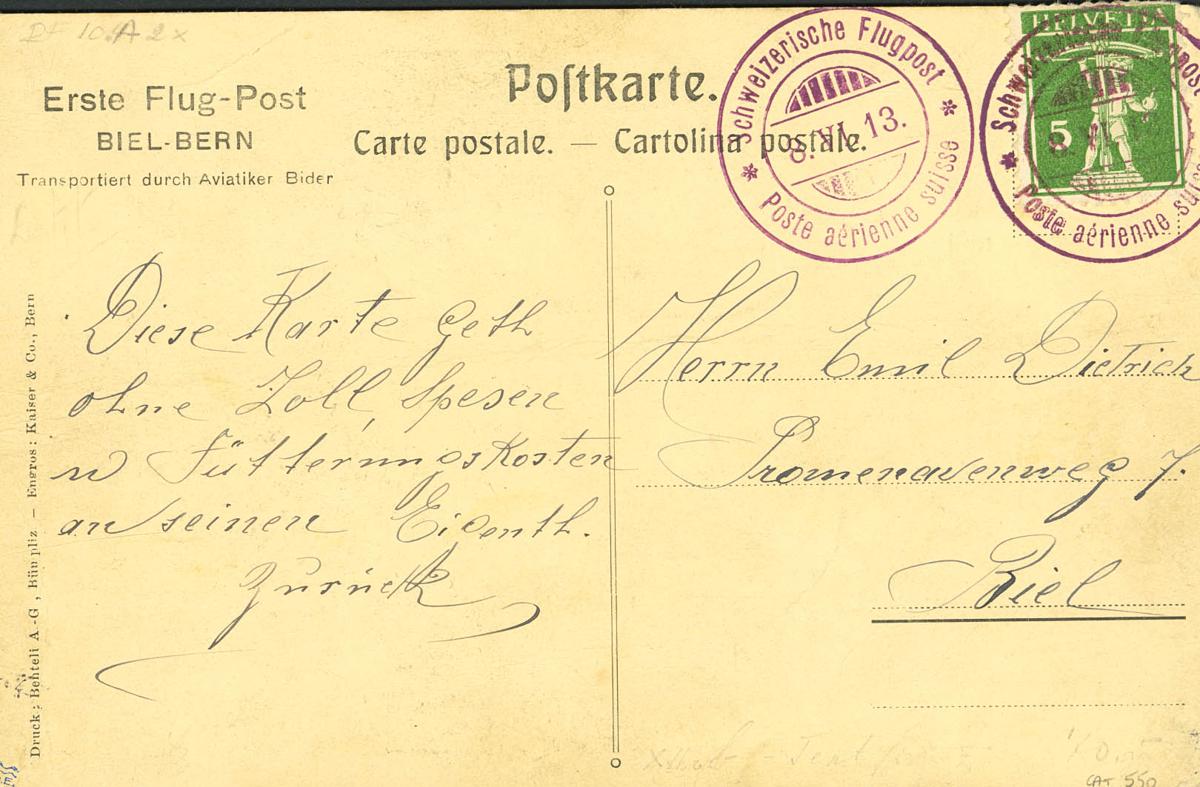 Erste Flug-Post
BIEL-BERN
Transportiert durch Aviatiker Bider
Postkarte.
Carte postale. — Cartolina postale.
Schweizerische Flugpost
8. VI. 13.
* Poste aérienne suisse *
HELVETIA
5
Schweizerische Flugpost
* Poste aérienne suisse
Diese Karte geth
ohne Zoll, Spesen
u Fütterungskosten
an seinen Eigenth.
zurück
Herrn Emil Dietrich
Promenadenweg 7.
Biel
Druck: Benteli A.-G., Bümpliz — Engros: Kaiser & Co., Bern
CAT 550